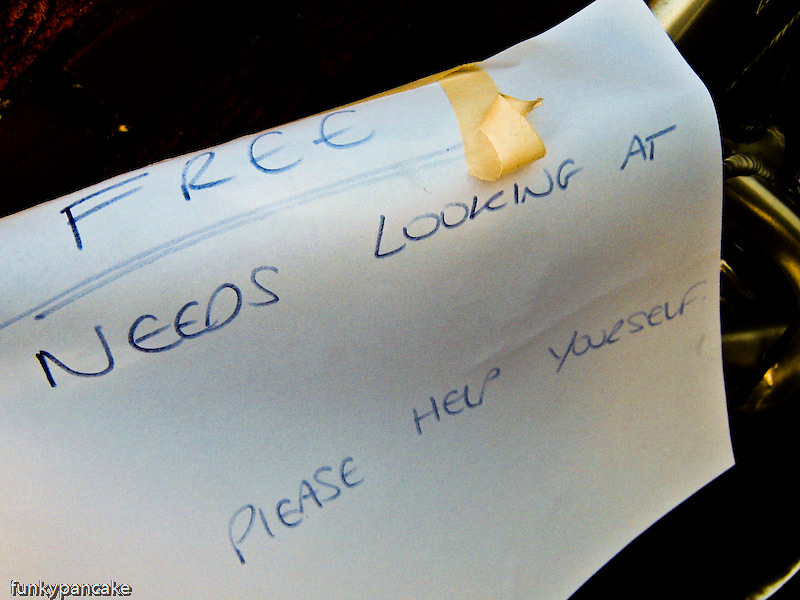 FREE
NEEDS LOOKING AT
PLEASE HELP YOURSELF.
funkypancake